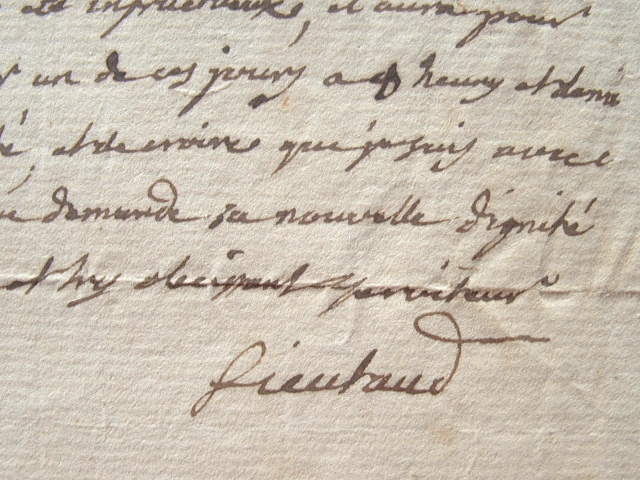 et infructueuse, et aura pour
un de ces jours a 9 heures et demi
et de croire que je suis avec
demande sa nouvelle dignité
et tres obeissant serviteur
Lieutaud